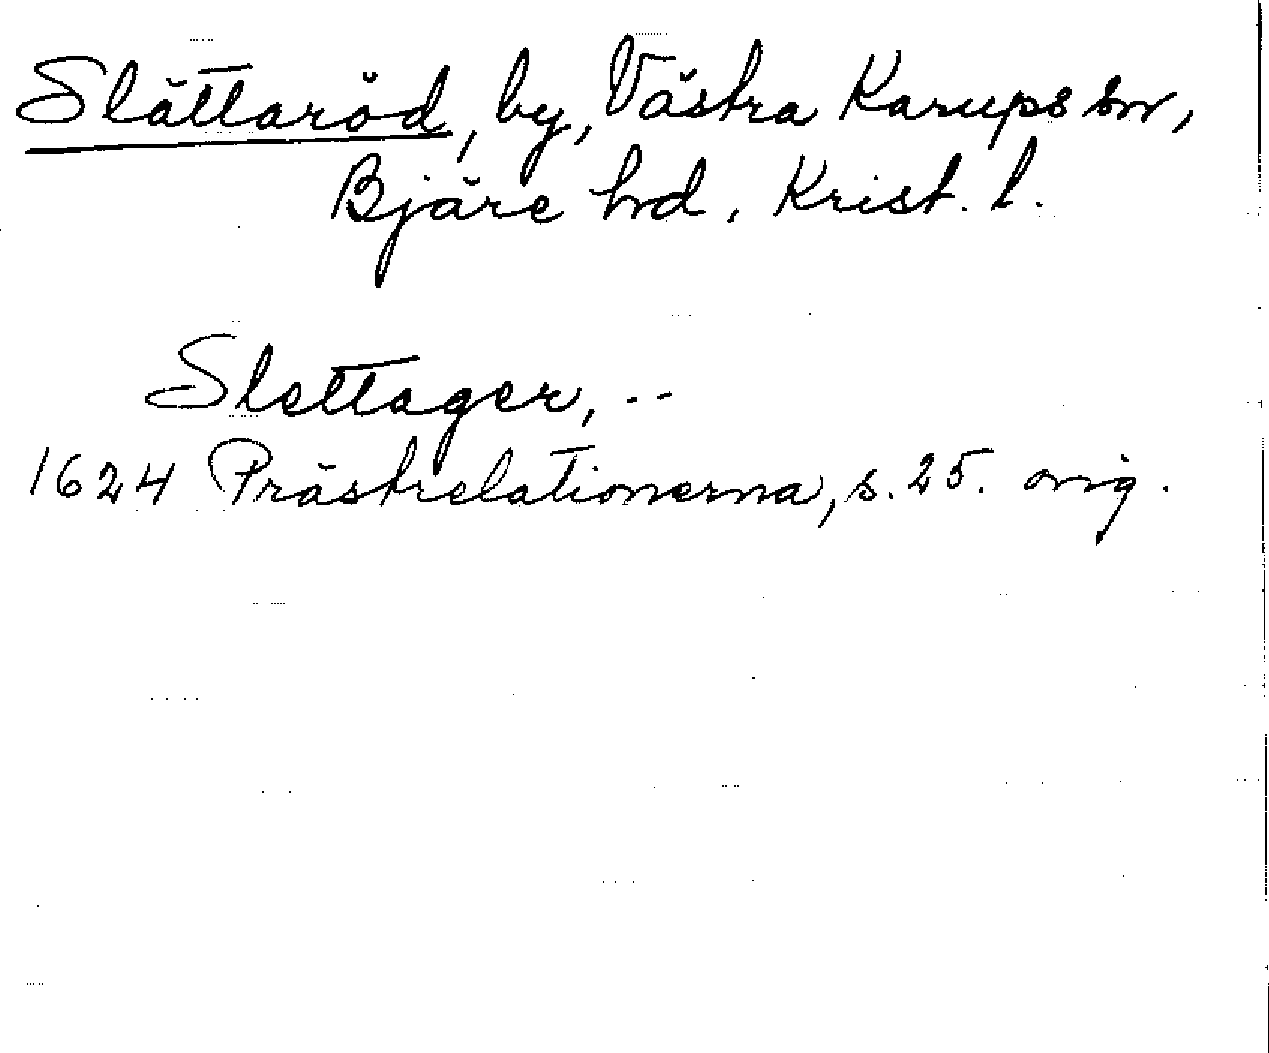 Slättaröd, by, Västra Karups sn,
Bjäre hd, Krist. l.
Slettager, --
1624 Prästrelationerna, s. 25. orig.